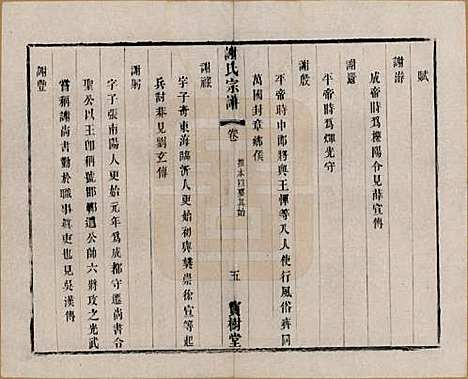 賦
謝游
成帝時爲櫟陽令見薛宣傳
謝還
平帝時爲煇光守
謝殷
平帝時中郎將與王惲等八人使行風俗齊同
萬國封章鄉侯
謝氏宗譜
卷
五
寶樹堂
謝祿
字子奇東海臨沂人更始初與樊崇徐宣等起
兵討莽見劉玄傳
謝躬
字子張南陽人更始元年爲成都守遷尚書令
聖公以王郎稱號邯鄲遣公帥六將攻之光武
嘗稱謝尚書勤於職事眞吏也見吳漢傳
謝豐